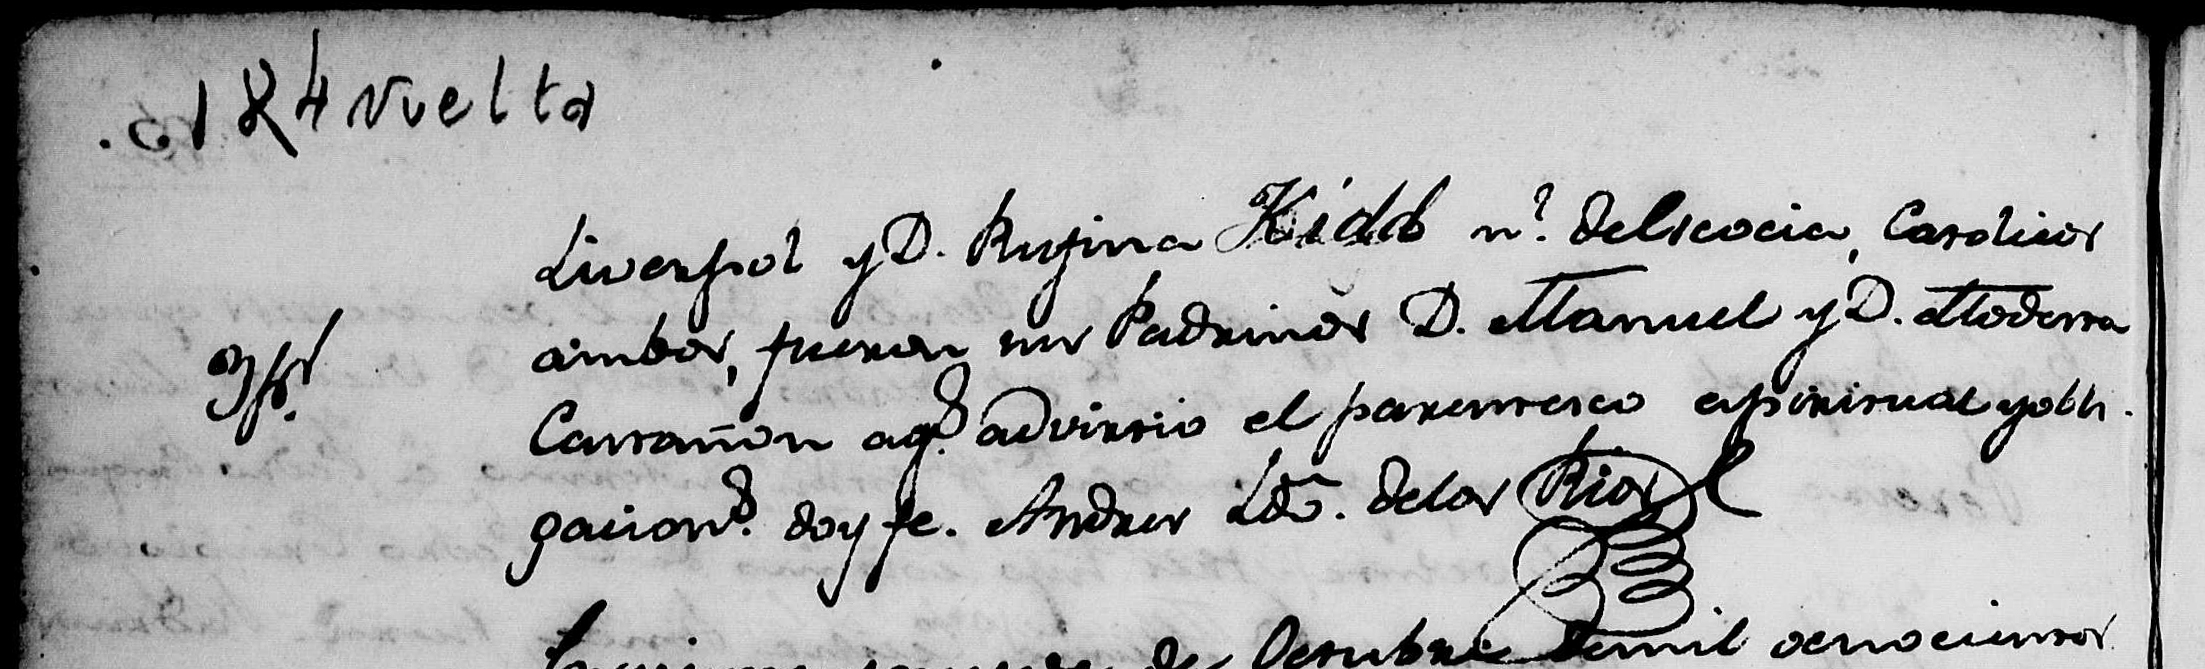 184 vuelta
Liverpol y D. Rugina Kidd n.l de Escocia, Catolicos
ambos, fueron sus Padrinos D. Manuel y D. Modesta
Castañon a q.s advirtio el parentesco espiritual y obli-
gacion.s doy fe. Andres Ldo. de los Rios
de Octubre de mil ochocientos